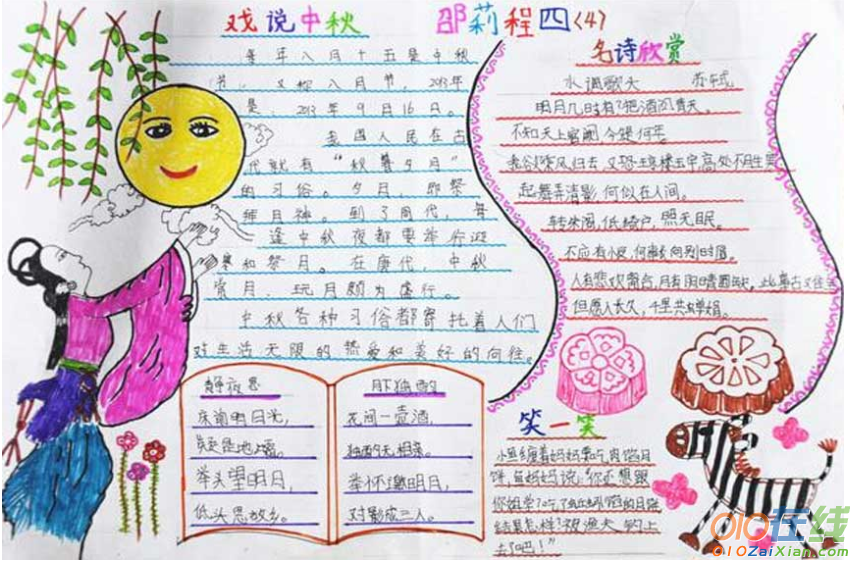 戏说中秋
邵莉程四〈4〉
每年八月十五是中秋
节，又称八月节，2013年
是，2013年9月16日。
我国人民在古
代就有“秋暮夕月”
的习俗。夕月，即祭
拜月神。到了周代，每
逢中秋夜都要举行迎
寒和祭月。在唐代，中秋
赏月、玩月颇为盛行。
中秋各种习俗都寄托着人们
对生活无限的热爱和美好的向往。
静夜思
床前明月光，
疑是地上霜。
举头望明月，
低头思故乡。
月下独酌
花间一壶酒，
独酌无相亲。
举杯邀明月，
对影成三人。
名诗欣赏
水调歌头 苏轼
明月几时有？把酒问青天。
不知天上宫阙，今夕是何年。
我欲乘风归去，又恐琼楼玉宇，高处不胜寒
起舞弄清影，何似在人间。
转朱阁，低绮户，照无眠。
不应有恨，何事长向别时圆。
人有悲欢离合，月有阴晴圆缺，此事古难全
但愿人长久，千里共婵娟。
笑一笑
小鱼缠着妈妈要吃肉馅月
饼，鱼妈妈说：“你还想跟
你姐学？吃了蚯蚓馅的月饼
结果怎样？被渔夫钓上
去了吧！”
010在线
010ZaiXian.com